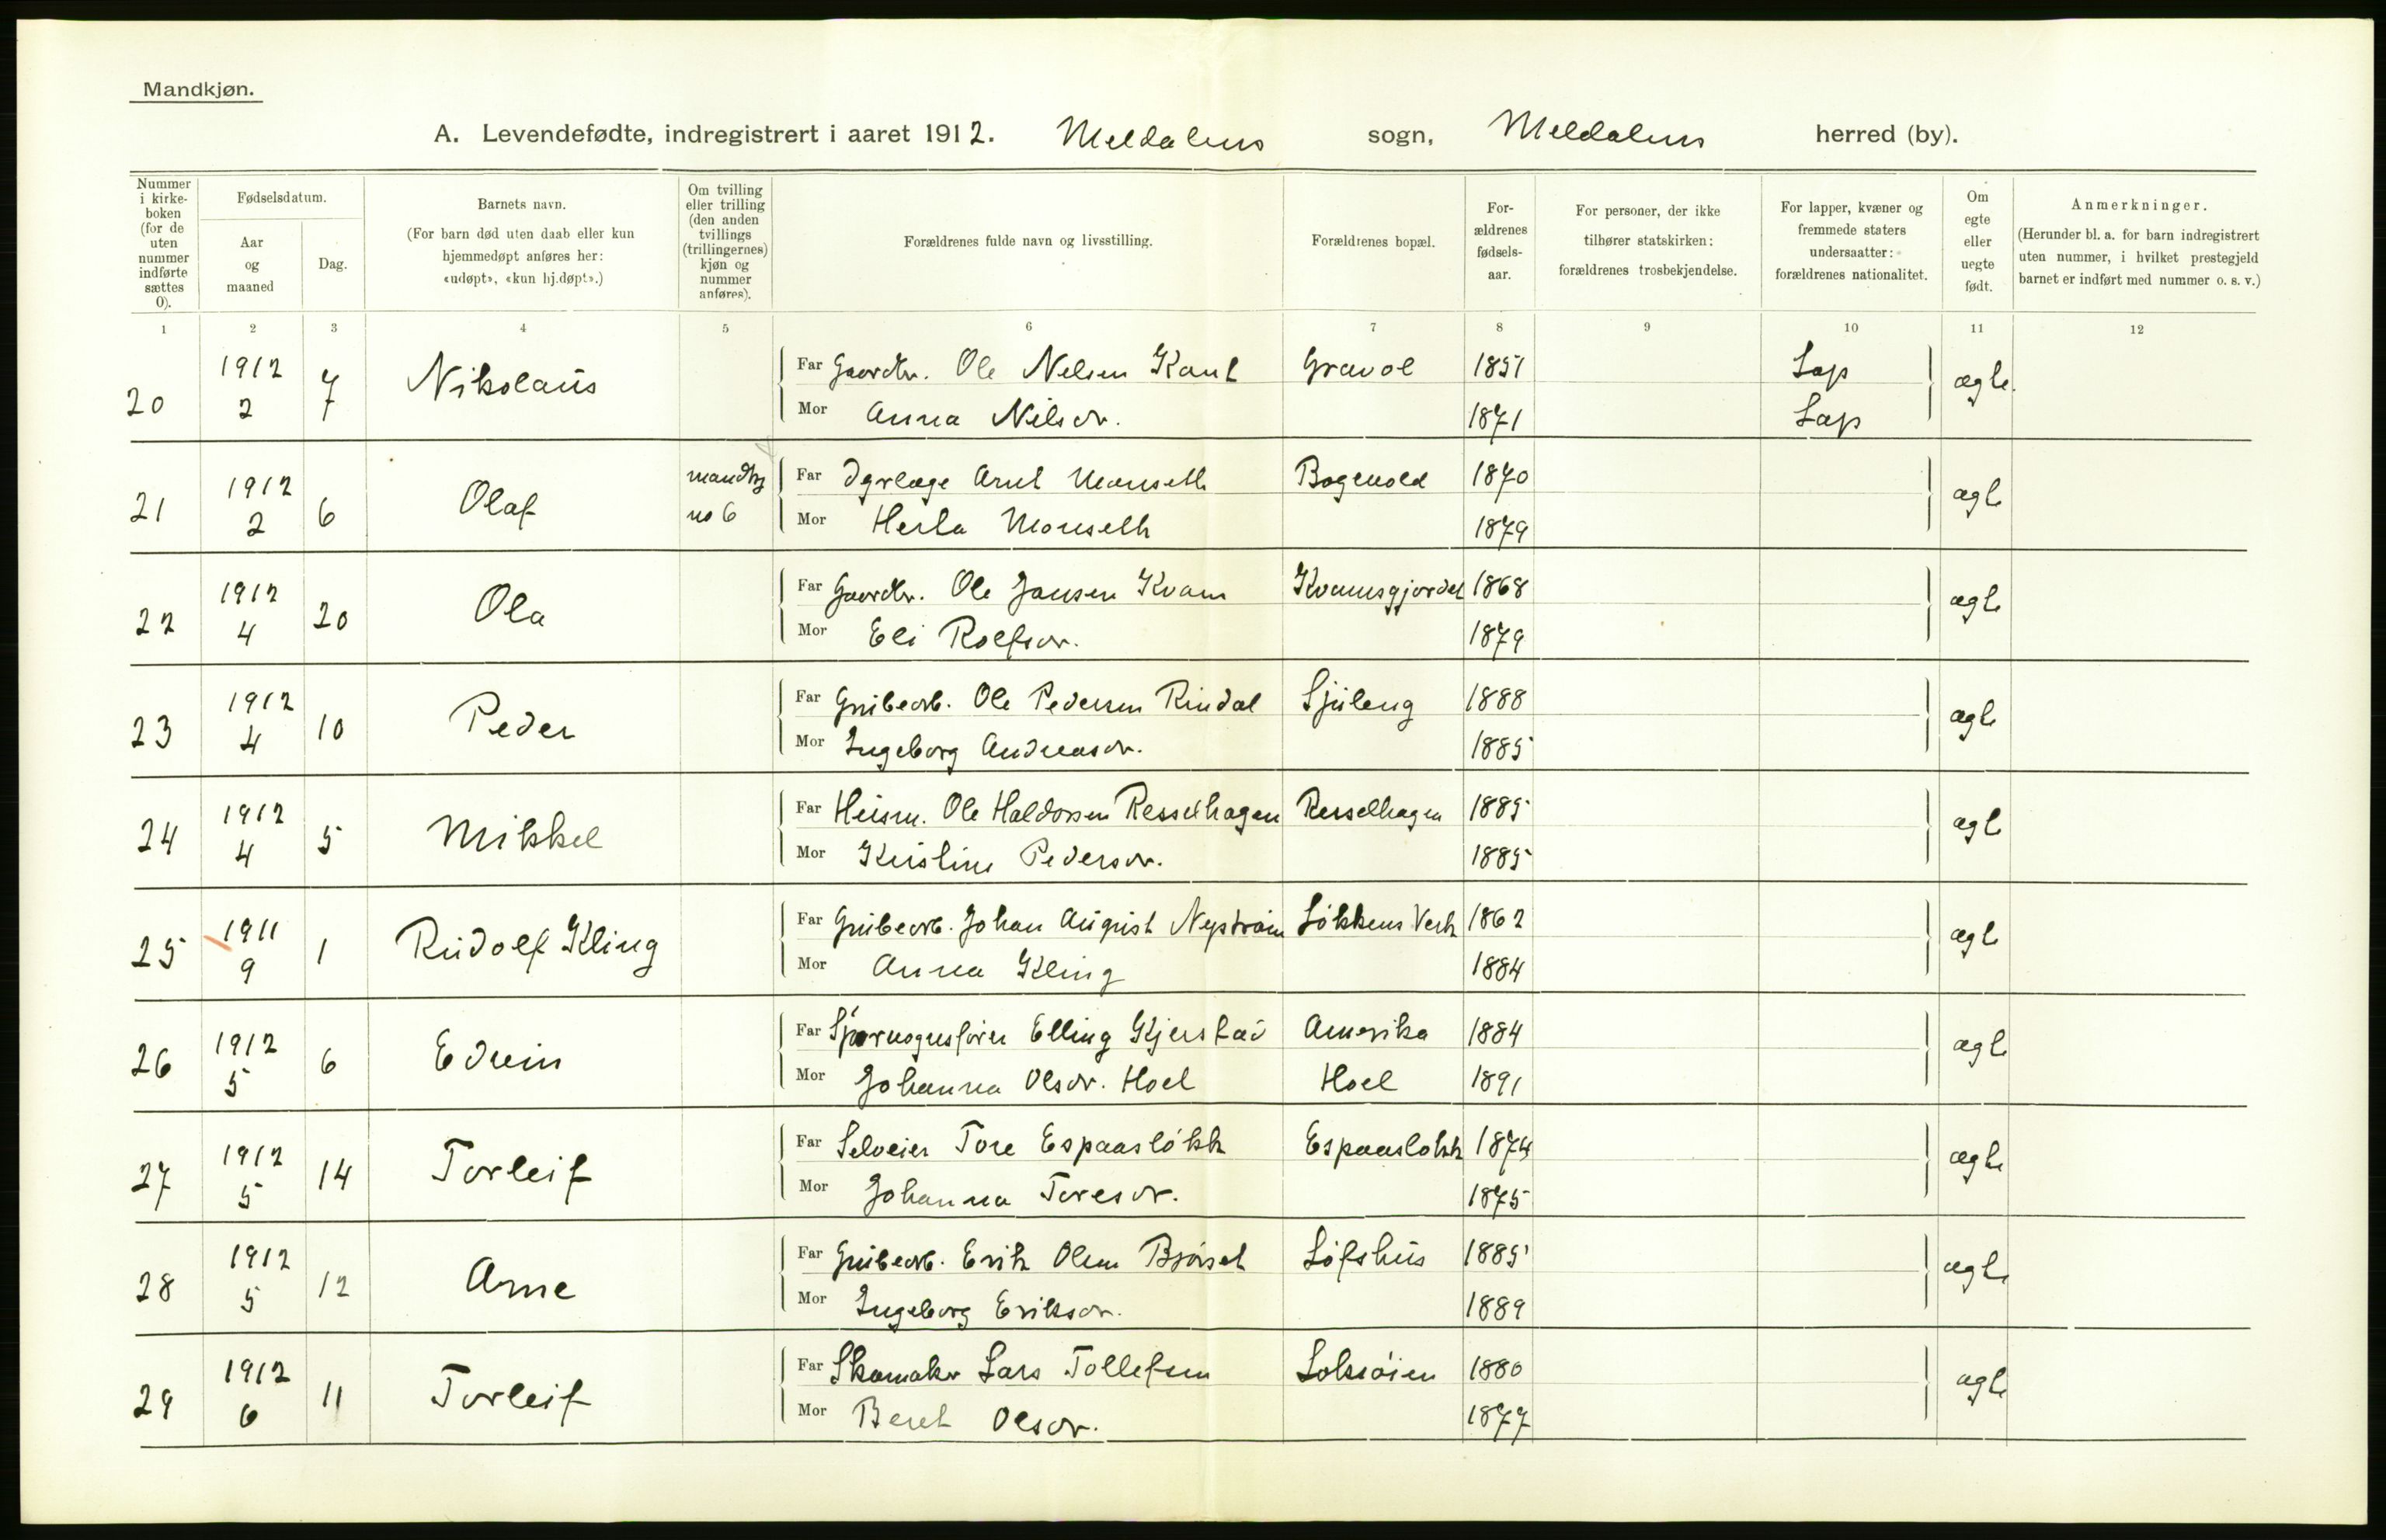 Mandkjøn.
A. Levendefødte, indregistrert i aaret 1912. Meldalens sogn, Meldalens herred (by).
Nummer i kirke-boken (for de uten nummer indførte sættes 0).
Fødselsdatum.
Aar og maaned
Dag.
Barnets navn.
(For barn død uten daab eller kun hjemmedøpt anføres her: «udøpt», «kun hj.døpt».)
Om tvilling eller trilling (den anden tvillings (trillingernes) kjøn og nummer anføres).
Forældrenes fulde navn og livsstilling.
Forældrenes bopæl.
For-ældrenes fødsels-aar.
For personer, der ikke tilhører statskirken: forældrenes trosbekjendelse.
For lapper, kvæner og fremmede staters undersaatter: forældrenes nationalitet.
Om egte eller uegte født.
Anmerkninger.
(Herunder bl. a. for barn indregistrert uten nummer, i hvilket prestegjeld barnet er indført med nummer o. s. v.)
1 2 3 4 5 6 7 8 9 10 11 12
20 1912 2 7 Nikolaus Far Gaardbr. Ole Nelsen Kant Gravol 1851 Lap ægte
Mor Anna Nilsdr. 1871 Lap
21 1912 2 6 Olaf mandkj no 6 Far Dyrlæge Arnt Monseth Bogevold 1870 ægte
Mor Herta Monseth 1879
22 1912 4 20 Ola Far Gaardbr. Ole Jansen Kvam Kvamsgjordet 1868 ægte
Mor Eli Rolfsdr. 1879
23 1912 4 10 Peder Far Grubearb. Ole Pedersen Rindal Sjuleng 1888 ægte
Mor Ingeborg Andreasdr. 1885
24 1912 4 5 Mikkel Far Heism. Ole Haldorsen Resselhagen Resselhagen 1885 ægte
Mor Kristine Pedersdr. 1885
25 1911 9 1 Rudolf Kling Far Grubearb. Johan August Nyström Løkkens Verk 1862 ægte
Mor Anna Kling 1884
26 1912 5 6 Edvin Far Sporvognsfører Elling Kjerstad Amerika 1884 ægte
Mor Johanna Olsdr. Hoel Hoel 1891
27 1912 5 14 Torleif Far Selveier Tore Espaasløkk Espaasløkk 1874 ægte
Mor Johanna Toresdr. 1875
28 1912 5 12 Arne Far Grubearb. Erik Olsen Bjørset Løfshus 1885 ægte
Mor Ingeborg Eriksdr. 1889
29 1912 6 11 Torleif Far Skomaker Lars Tollefsen 1880 ægte
Mor Beret Olsdr. 1877